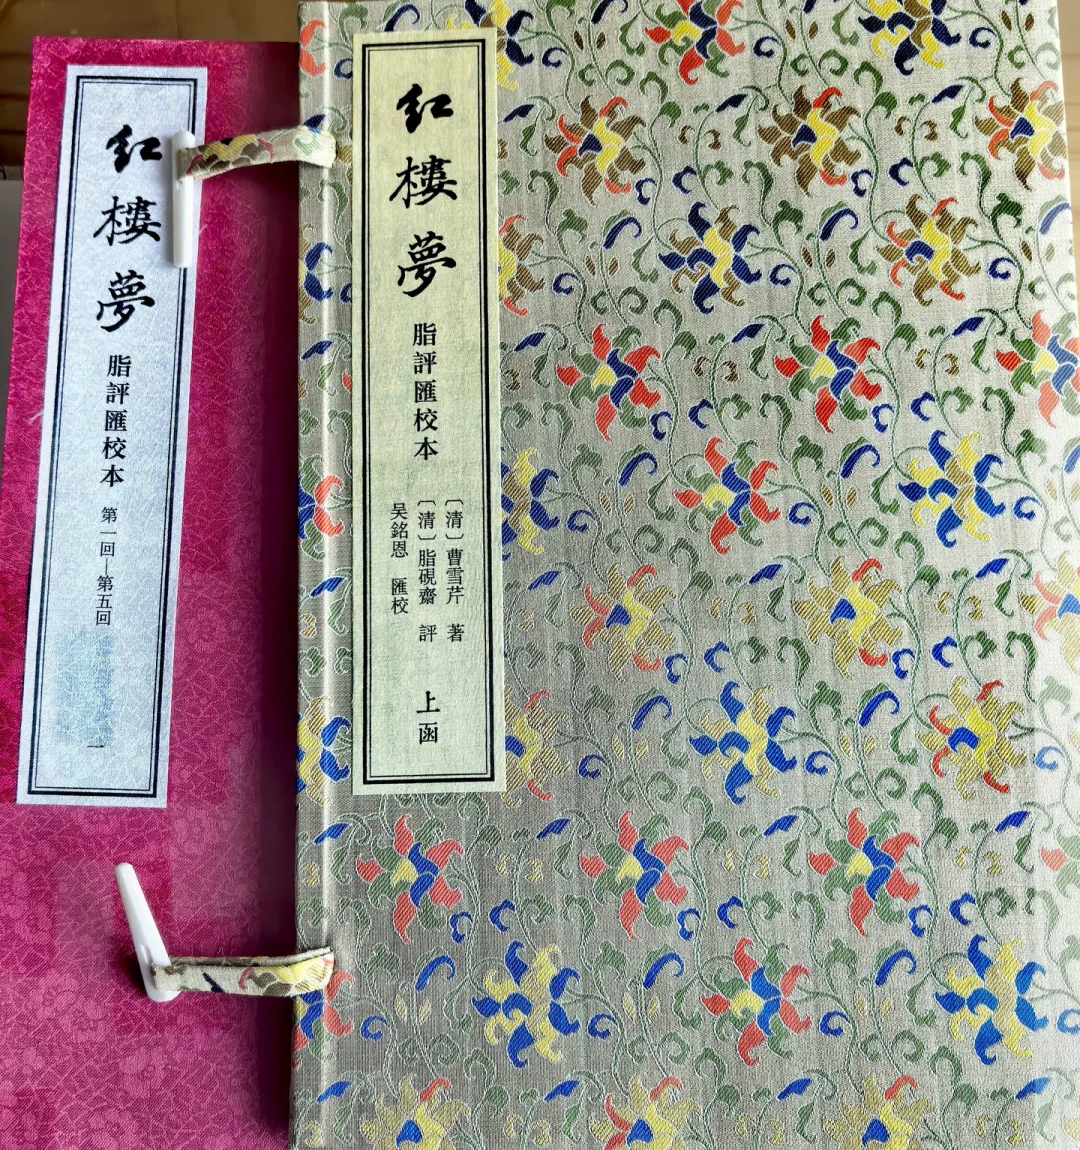 紅樓夢
脂評匯校本
〔清〕曹雪芹 著
〔清〕脂硯齋 評
吴銘恩 匯校
上函
紅樓夢
脂評匯校本
第一回—第五回
一